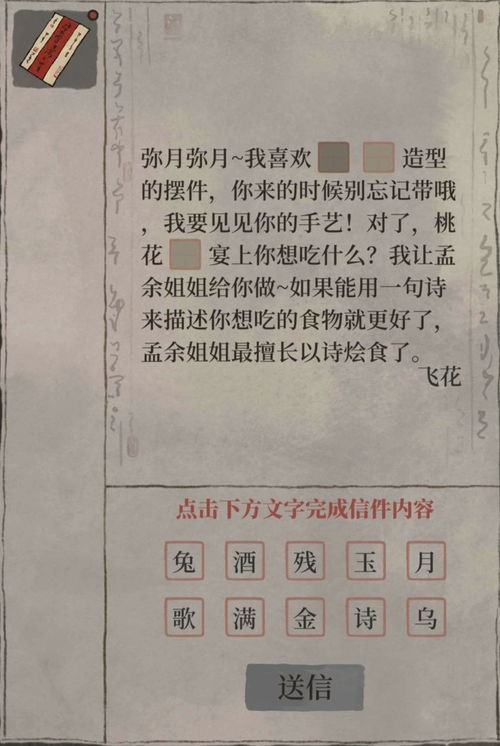 弥月弥月~我喜欢 造型
的摆件，你来的时候别忘记带哦
，我要见见你的手艺！对了，桃
花 宴上你想吃什么？我让孟
余姐姐给你做~如果能用一句诗
来描述你想吃的食物就更好了，
孟余姐姐最擅长以诗烩食了。
飞花
点击下方文字完成信件内容
兔 酒 残 玉 月
歌 满 金 诗 乌
送信